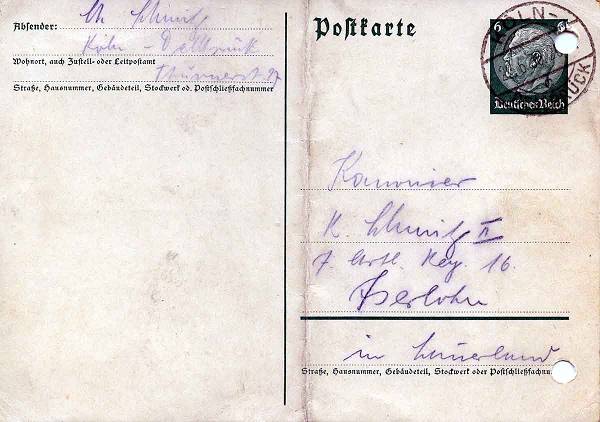 Absender: M. Schmitz
Köln-Dellbrück
Wohnort, auch Zustell- oder Leitpostamt
Thurnerstr. 27
Straße, Hausnummer, Gebäudeteil, Stockwerk od. Postschließfachnummer
Postkarte
6 6
Deutsches Reich
KÖLN-
BRÜCK
Kanonier
K. Schmitz II
7. Artl. Reg. 16.
Iserlohn
in Sauerland
Straße, Hausnummer, Gebäudeteil, Stockwerk oder Postschließfachnu